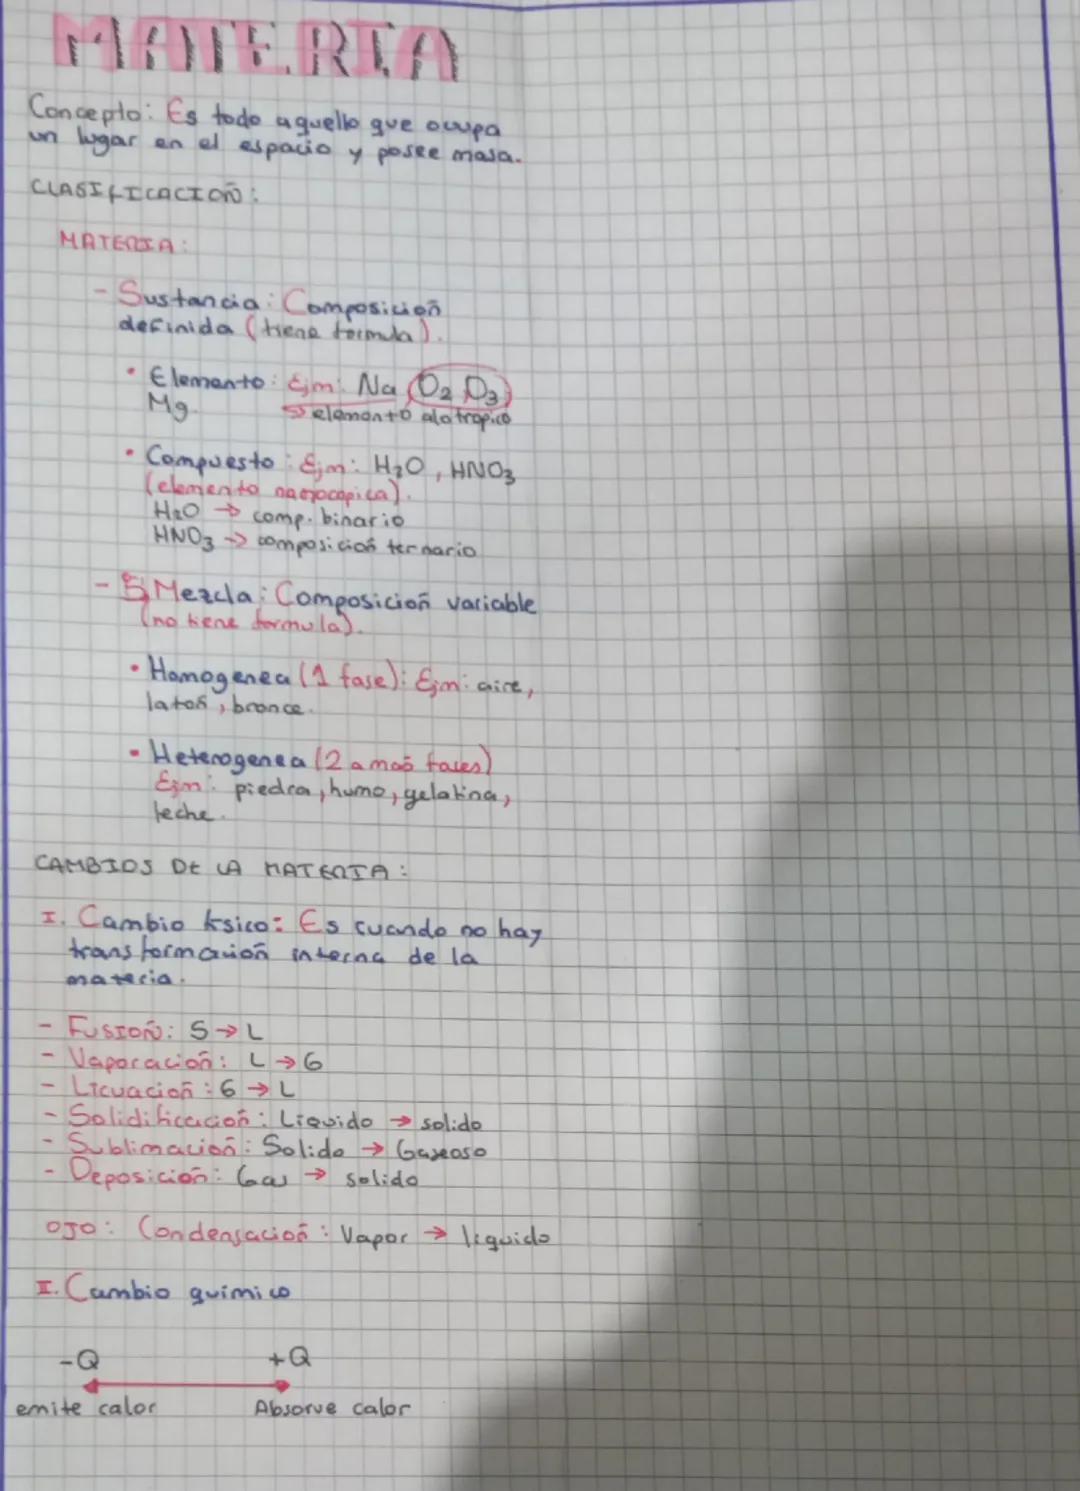 MATERIA
Concepto: Es todo aquello que ocupa
un lugar en el espacio y posee masa.
CLASIFICACIÓN:
MATERIA:
- Sustancia: Composición
definida (tiene formula).
• Elemento: Ejm: Na, O2, O3,
Mg. elemento alotropico
• Compuesto: Ejm: H2O, HNO3
(elemento
H2O → comp. binario
HNO3 → composición ternario
- Mezcla: Composición variable
(no tiene formula).
• Homogenea (1 fase): Ejm: aire,
latón, bronce.
• Heterogenea (2 a más fases)
Ejm: piedra, humo, gelatina,
leche.
CAMBIOS DE LA MATERIA:
I. Cambio físico: Es cuando no hay
transformación interna de la
materia.
- FUSIÓN: S → L
- Vaporación: L → G
- Licuación: G → L
- Solidificación: Liquido → solido
- Sublimación: Solido → Gaseoso
- Deposición: Gas → solido
OJO: Condensación: Vapor → liquido
II. Cambio quimico
-Q +Q
emite calor Absorve calor